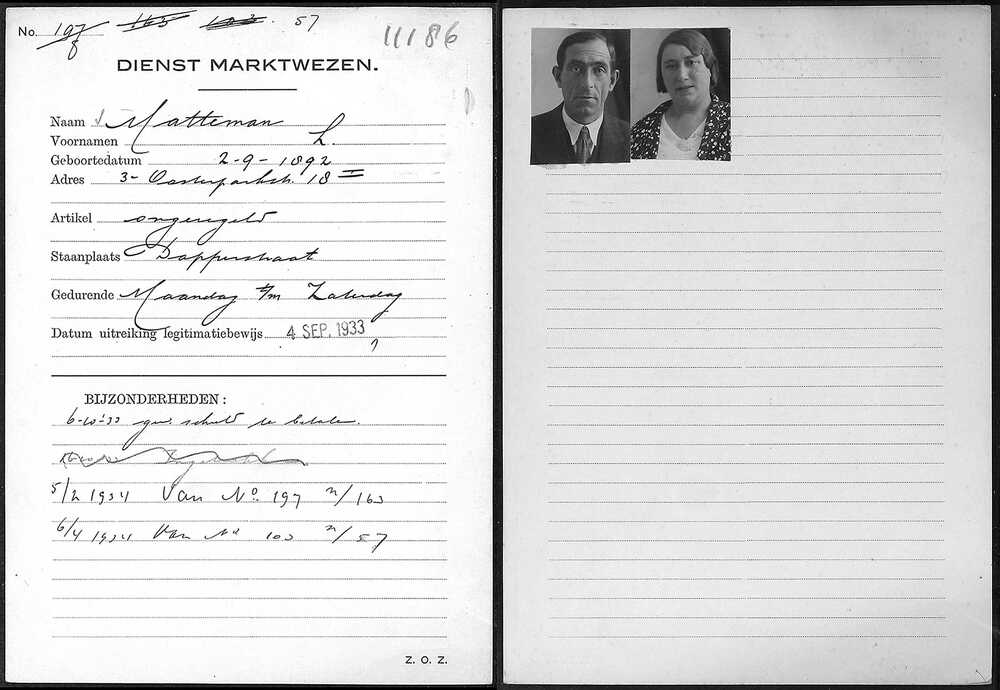 No. 197 163 103. 57
8
11186
DIENST MARKTWEZEN.
Naam Matteman
Voornamen L.
Geboortedatum 2-9-1892
Adres 3- Oosterparkstr. 18 II
Artikel ongeregeld
Staanplaats Dapperstraat
Gedurende Maandag t/m Zaterdag
Datum uitreiking legitimatiebewijs 4 SEP. 1933
BIJZONDERHEDEN:
6-10-'33 gew. schuld te betalen.
5/2 1934 Van No. 197 n/ 163
6/4 1934 Van No 103 n/ 57
Z. O. Z.